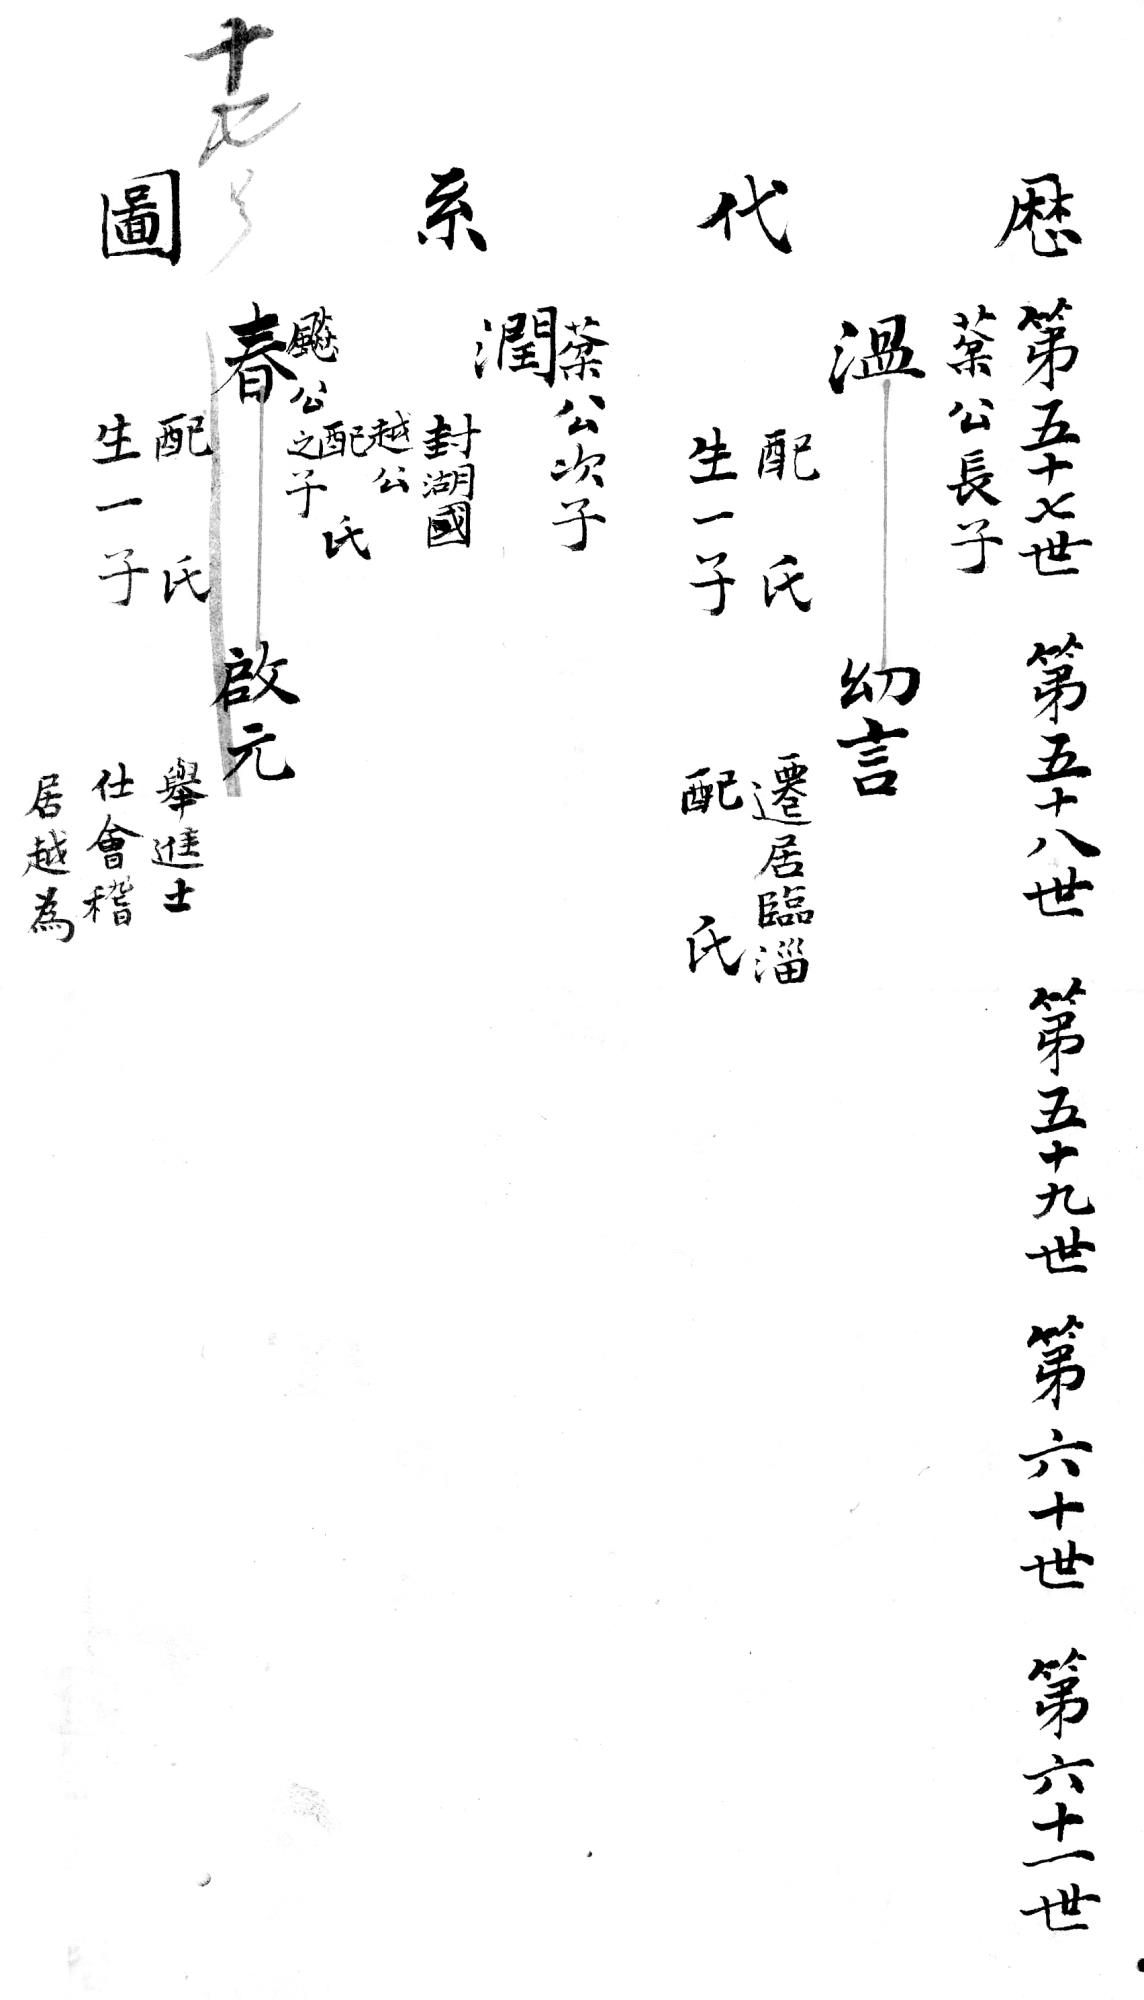 歴代系圖
第五十七世 第五十八世 第五十九世 第六十世 第六十一世
蘂公長子
溫 幼言
配 氏
生一子
遷居臨淄
配 氏
蘂公次子
潤
封湖國
越公
配 氏
公之子
春 啟元
配 氏
生一子
舉進士
仕會稽
居越為
十七